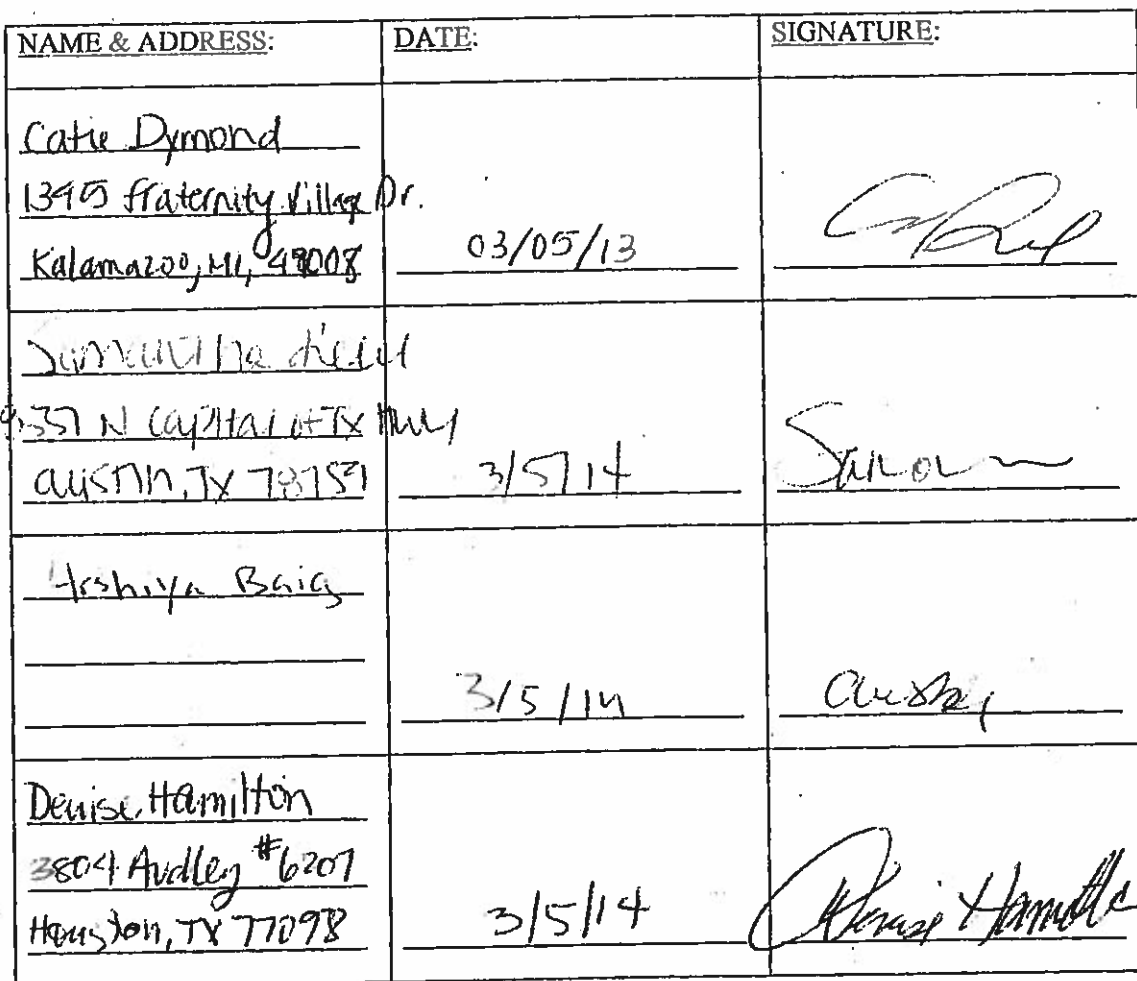 NAME & ADDRESS: DATE: SIGNATURE:
Catie Dymond
1345 fraternity village Dr.
Kalamazoo, MI, 49008 03/05/13
Samantha
N Capital of TX Hwy
austin, TX 3/5/14
Arshiya Baig
3/5/14
Denise Hamilton
3804 Audley #6207
Houston, TX 77098 3/5/14 Denise Hamilton